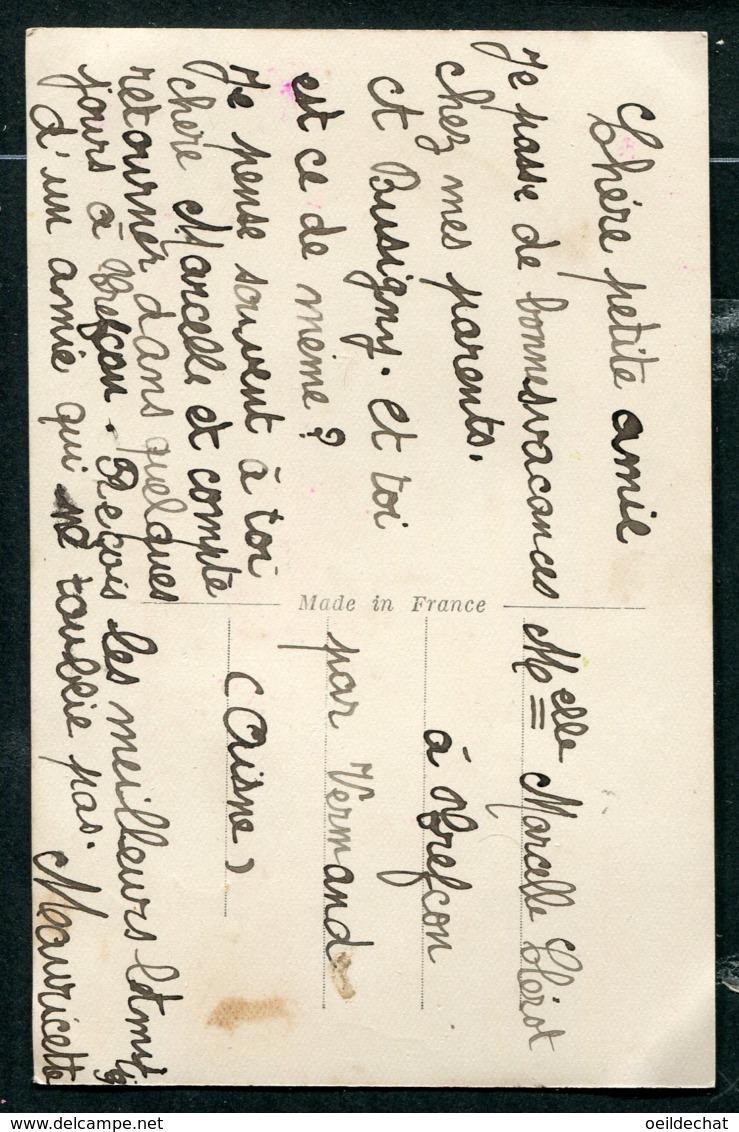 Chère petite amie
Je passe de bonnes vacances
chez mes parents.
A Busigny. et toi
est ce de meme ?
Je pense souvent à toi
chère Marcelle et compte
retourner dans quelques
jours à Trefcon. Reçois les meilleurs
d'un amie qui ne t'oublie pas. Mauricette
Made in France
Melle Marcelle
à Trefcon
par Vermand
(Aisne)
oeildechat